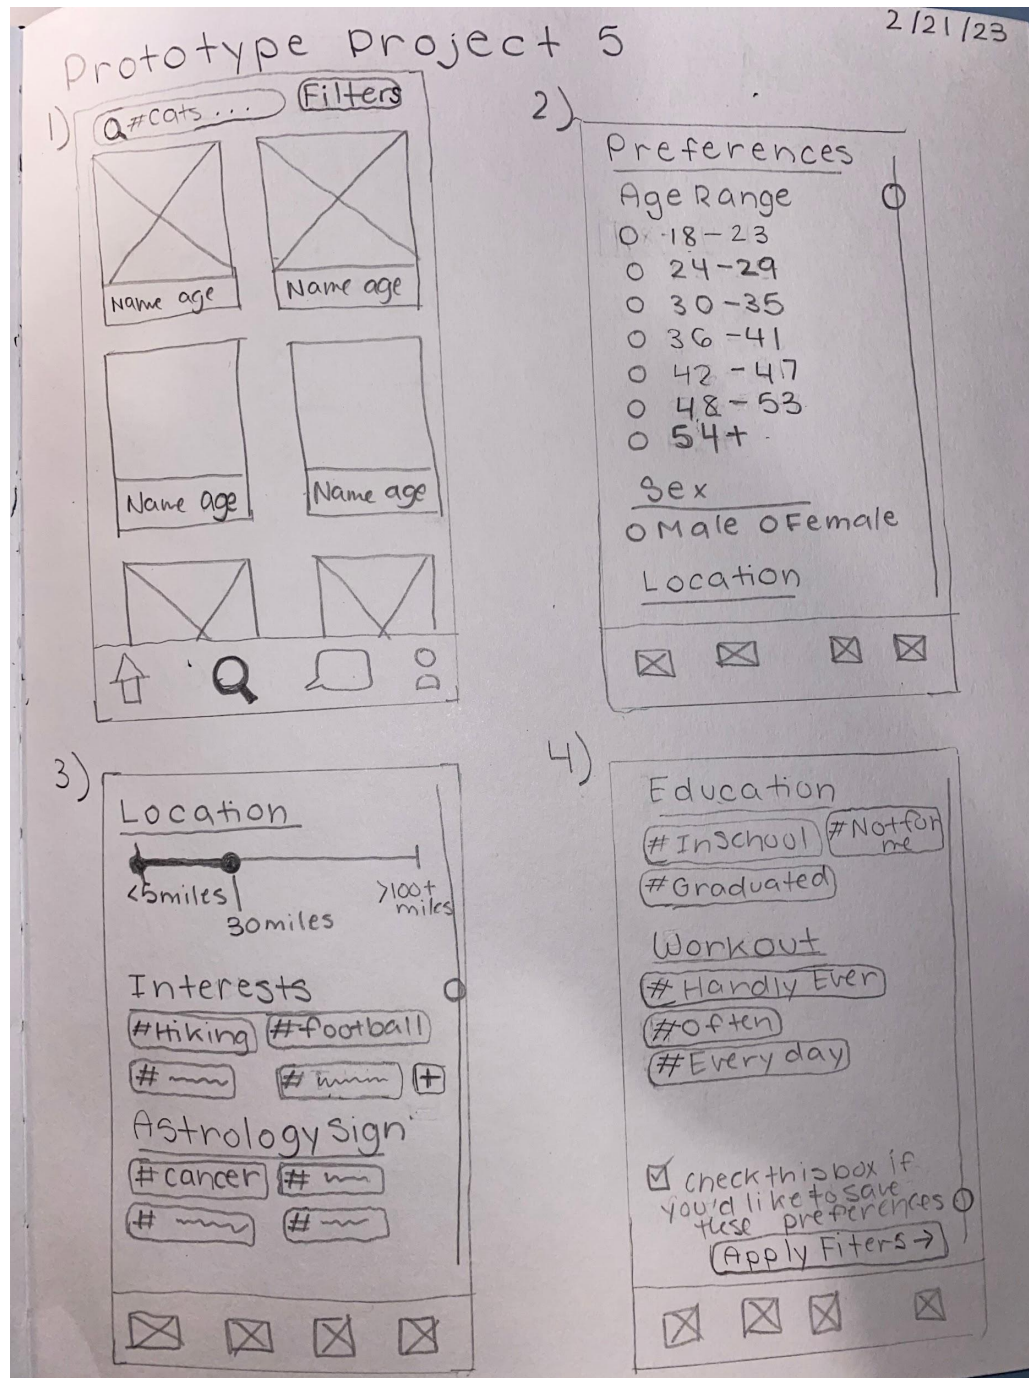 Prototype Project 5
2/21/23
1)
#cats...
Filters
Name age
Name age
Name age
Name age
2)
Preferences
Age Range
18-23
24-29
30-35
36-41
42-47
48-53
54+
Sex
Male Female
Location
3)
Location
<5miles
30miles
>100+
miles
Interests
#Hiking #football
# #
+
Astrology Sign
#cancer #
# #
4)
Education
#InSchool #Notfor
me
#Graduated
Workout
#Handly Ever
#Often
#Every day
check this box if
you'd like to save
these preferences
Apply Fiters →